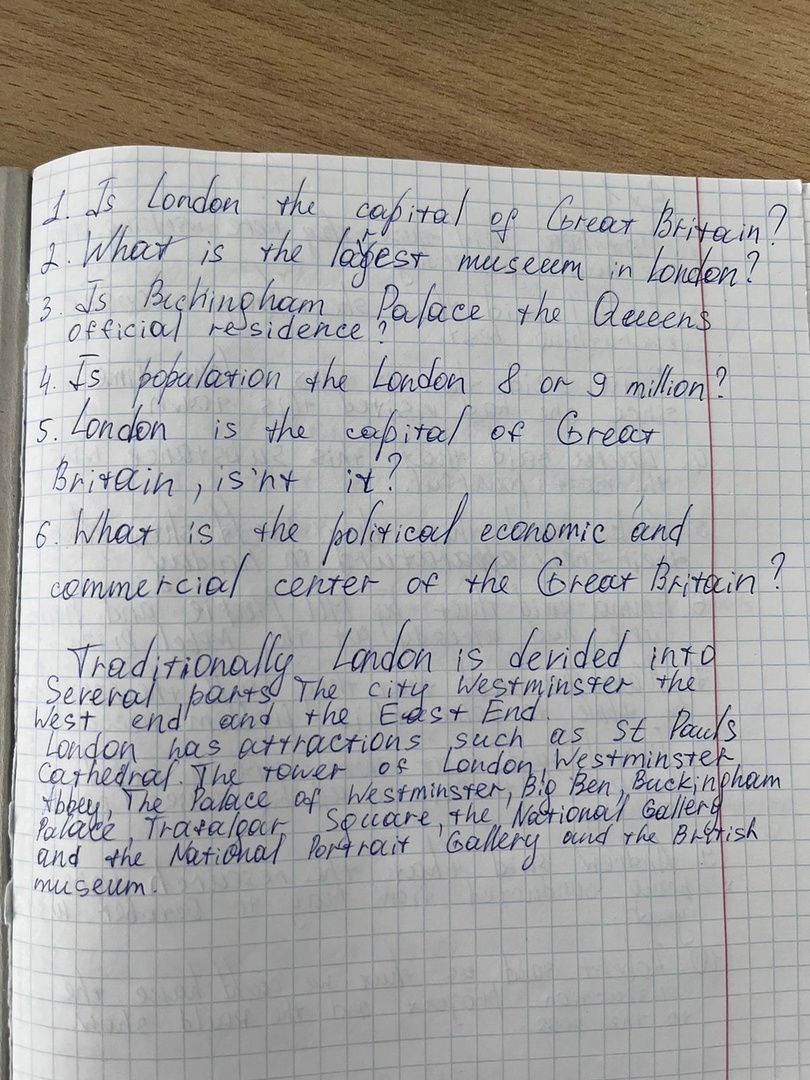 1. Is London the capital of Great Britain?
2. What is the largest museum in London?
3. Is Buckingham Palace the Queens
official residence?
4. Is population the London 8 or 9 million?
5. London is the capital of Great
Britain, is'nt it?
6. What is the political economic and
commercial center of the Great Britain?
Traditionally London is devided into
several parts The city Westminster the
West end and the East End.
London has attractions such as St Pauls
Cathedral. The tower of London, Westminster
Abbey, The Palace of Westminster, Big Ben, Buckingham
Palace, Trafalgar Square, the National Gallery
and the National Portrait Gallery and the British
museum.